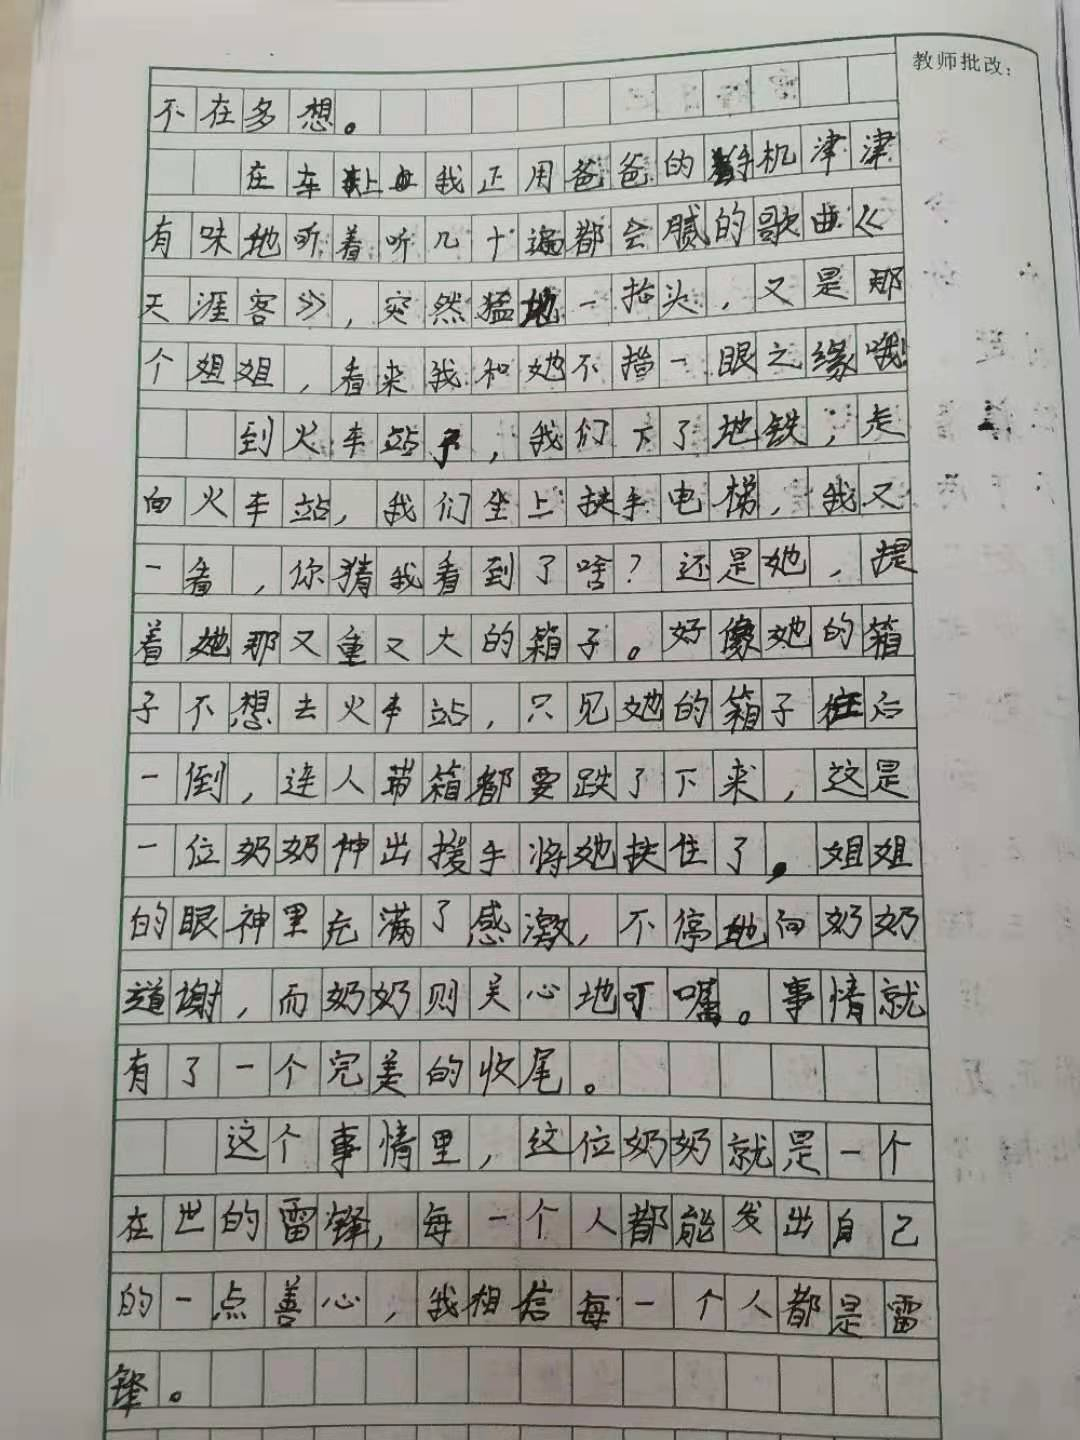 教师批改：
不在多想。
在车上我正用爸爸的手机津津
有味地听着听几十遍都会腻的歌曲《
天涯客》，突然猛地一抬头，又是那
个姐姐，看来我和她不撸一眼之缘哦
到火车站了，我们下了地铁，走
向火车站，我们坐上扶手电梯，我又
一看，你猜我看到了啥？还是她，提
着她那又重又大的箱子。好像她的箱
子不想去火车站，只见她的箱子往后
一倒，连人带箱都要跌了下来，这是
一位奶奶伸出援手将她扶住了，姐姐
的眼神里充满了感激，不停地向奶奶
道谢，而奶奶则关心地叮嘱。事情就
有了一个完美的收尾。
这个事情里，这位奶奶就是一个
在世的雷锋，每一个人都能发出自己
的一点善心，我相信每一个人都是雷
锋。